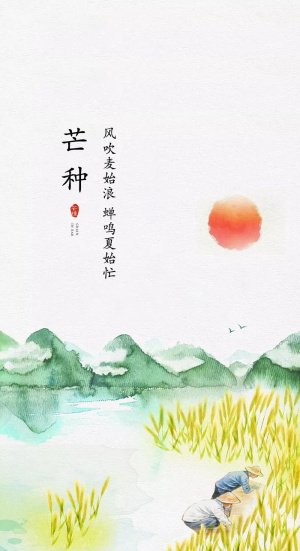 芒种
风吹麦始浪 蝉鸣夏始忙